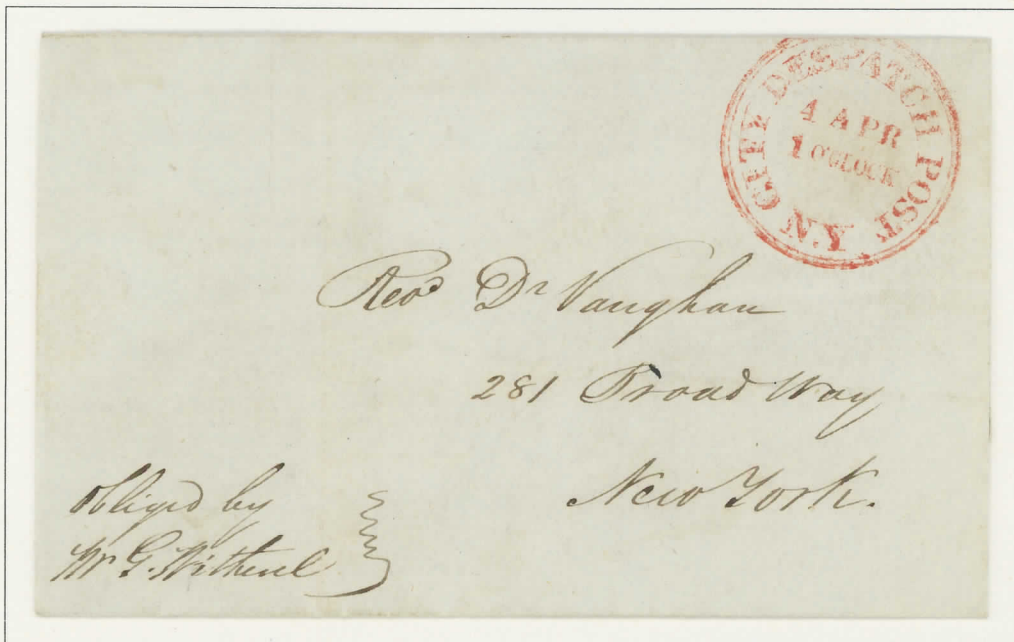 N.Y. CITY DESPATCH POST
4 APR
1 O'CLOCK
Revd Dr Vaughan
281 Broad Way
New York.
obliged by
Mr G.